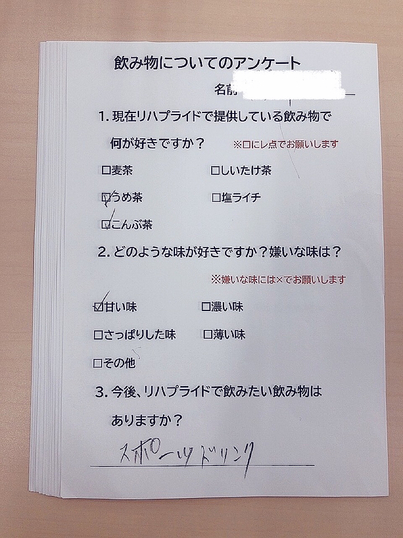 飲み物についてのアンケート
名前
1. 現在リハプライドで提供している飲み物で
何が好きですか? ※口にレ点でお願いします
□麦茶 □しいたけ茶
☑うめ茶 □塩ライチ
☑こんぶ茶
2. どのような味が好きですか?嫌いな味は?
※嫌いな味には×でお願いします
☑甘い味 □濃い味
□さっぱりした味 □薄い味
□その他
3. 今後、リハプライドで飲みたい飲み物は
ありますか?
スポーツドリンク